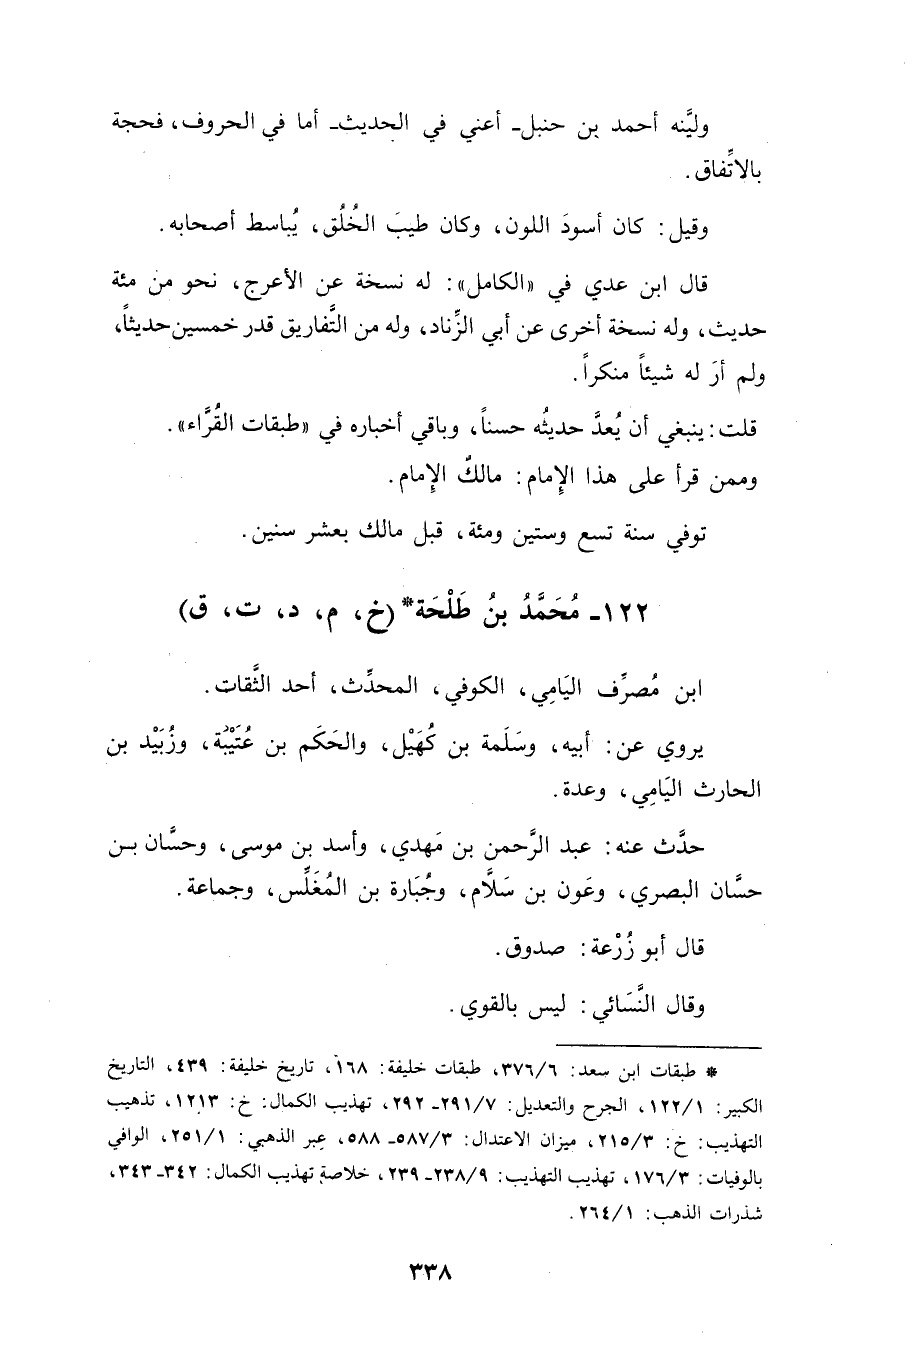 وليَّنه أحمد بن حنبل- أعني في الحديث- أما في الحروف، فحجة
بالاتِّفاق.
وقيل: كان أسودَ اللون، وكان طيبَ الخُلُق، يُباسط أصحابه.
قال ابن عدي في «الكامل»: له نسخة عن الأعرج، نحو من مئة
حديث، وله نسخة أخرى عن أبي الزِّناد، وله من التَّفاريق قدر خمسين حديثاً،
ولم أرَ له شيئاً منكراً.
قلت: ينبغي أن يُعدَّ حديثُه حسناً، وباقي أخباره في «طبقات القُرَّاء».
وممن قرأ على هذا الإِمام: مالكٌ الإِمام.
توفي سنة تسع وستين ومئة، قبل مالك بعشر سنين.
١٢٢- مُحَمَّدُ بنُ طَلْحَة* (خ، م، د، ت، ق)
ابن مُصرِّف اليَامِي، الكوفي، المحدِّث، أحد الثَّقات.
يروي عن: أبيه، وسَلَمة بن كُهَيْل، والحَكَم بن عُتَيْبَة، وزُبَيْد بن
الحارث اليَامِي، وعدة.
حدَّث عنه: عبد الرَّحمن بن مَهدي، وأسد بن موسى، وحسَّان بن
حسَّان البصري، وعَون بن سَلاَّم، وجُبَارة بن المُغَلِّس، وجماعة.
قال أبو زُرْعة: صدوق.
وقال النَّسَائي: ليس بالقوي.
* طبقات ابن سعد: ٣٧٦/٦، طبقات خليفة: ١٦٨، تاريخ خليفة: ٤٣٩، التاريخ
الكبير: ١٢٢/١، الجرح والتعديل: ٢٩١/٧- ٢٩٢، تهذيب الكمال: خ: ١٢١٣، تذهيب
التهذيب: خ: ٢١٥/٣، ميزان الاعتدال: ٥٨٧/٣- ٥٨٨، عِبر الذهبي: ٢٥١/١، الوافي
بالوفيات: ١٧٦/٣، تهذيب التهذيب: ٢٣٨/٩- ٢٣٩، خلاصة تهذيب الكمال: ٣٤٢- ٣٤٣،
شذرات الذهب: ٢٦٤/١.
٣٣٨